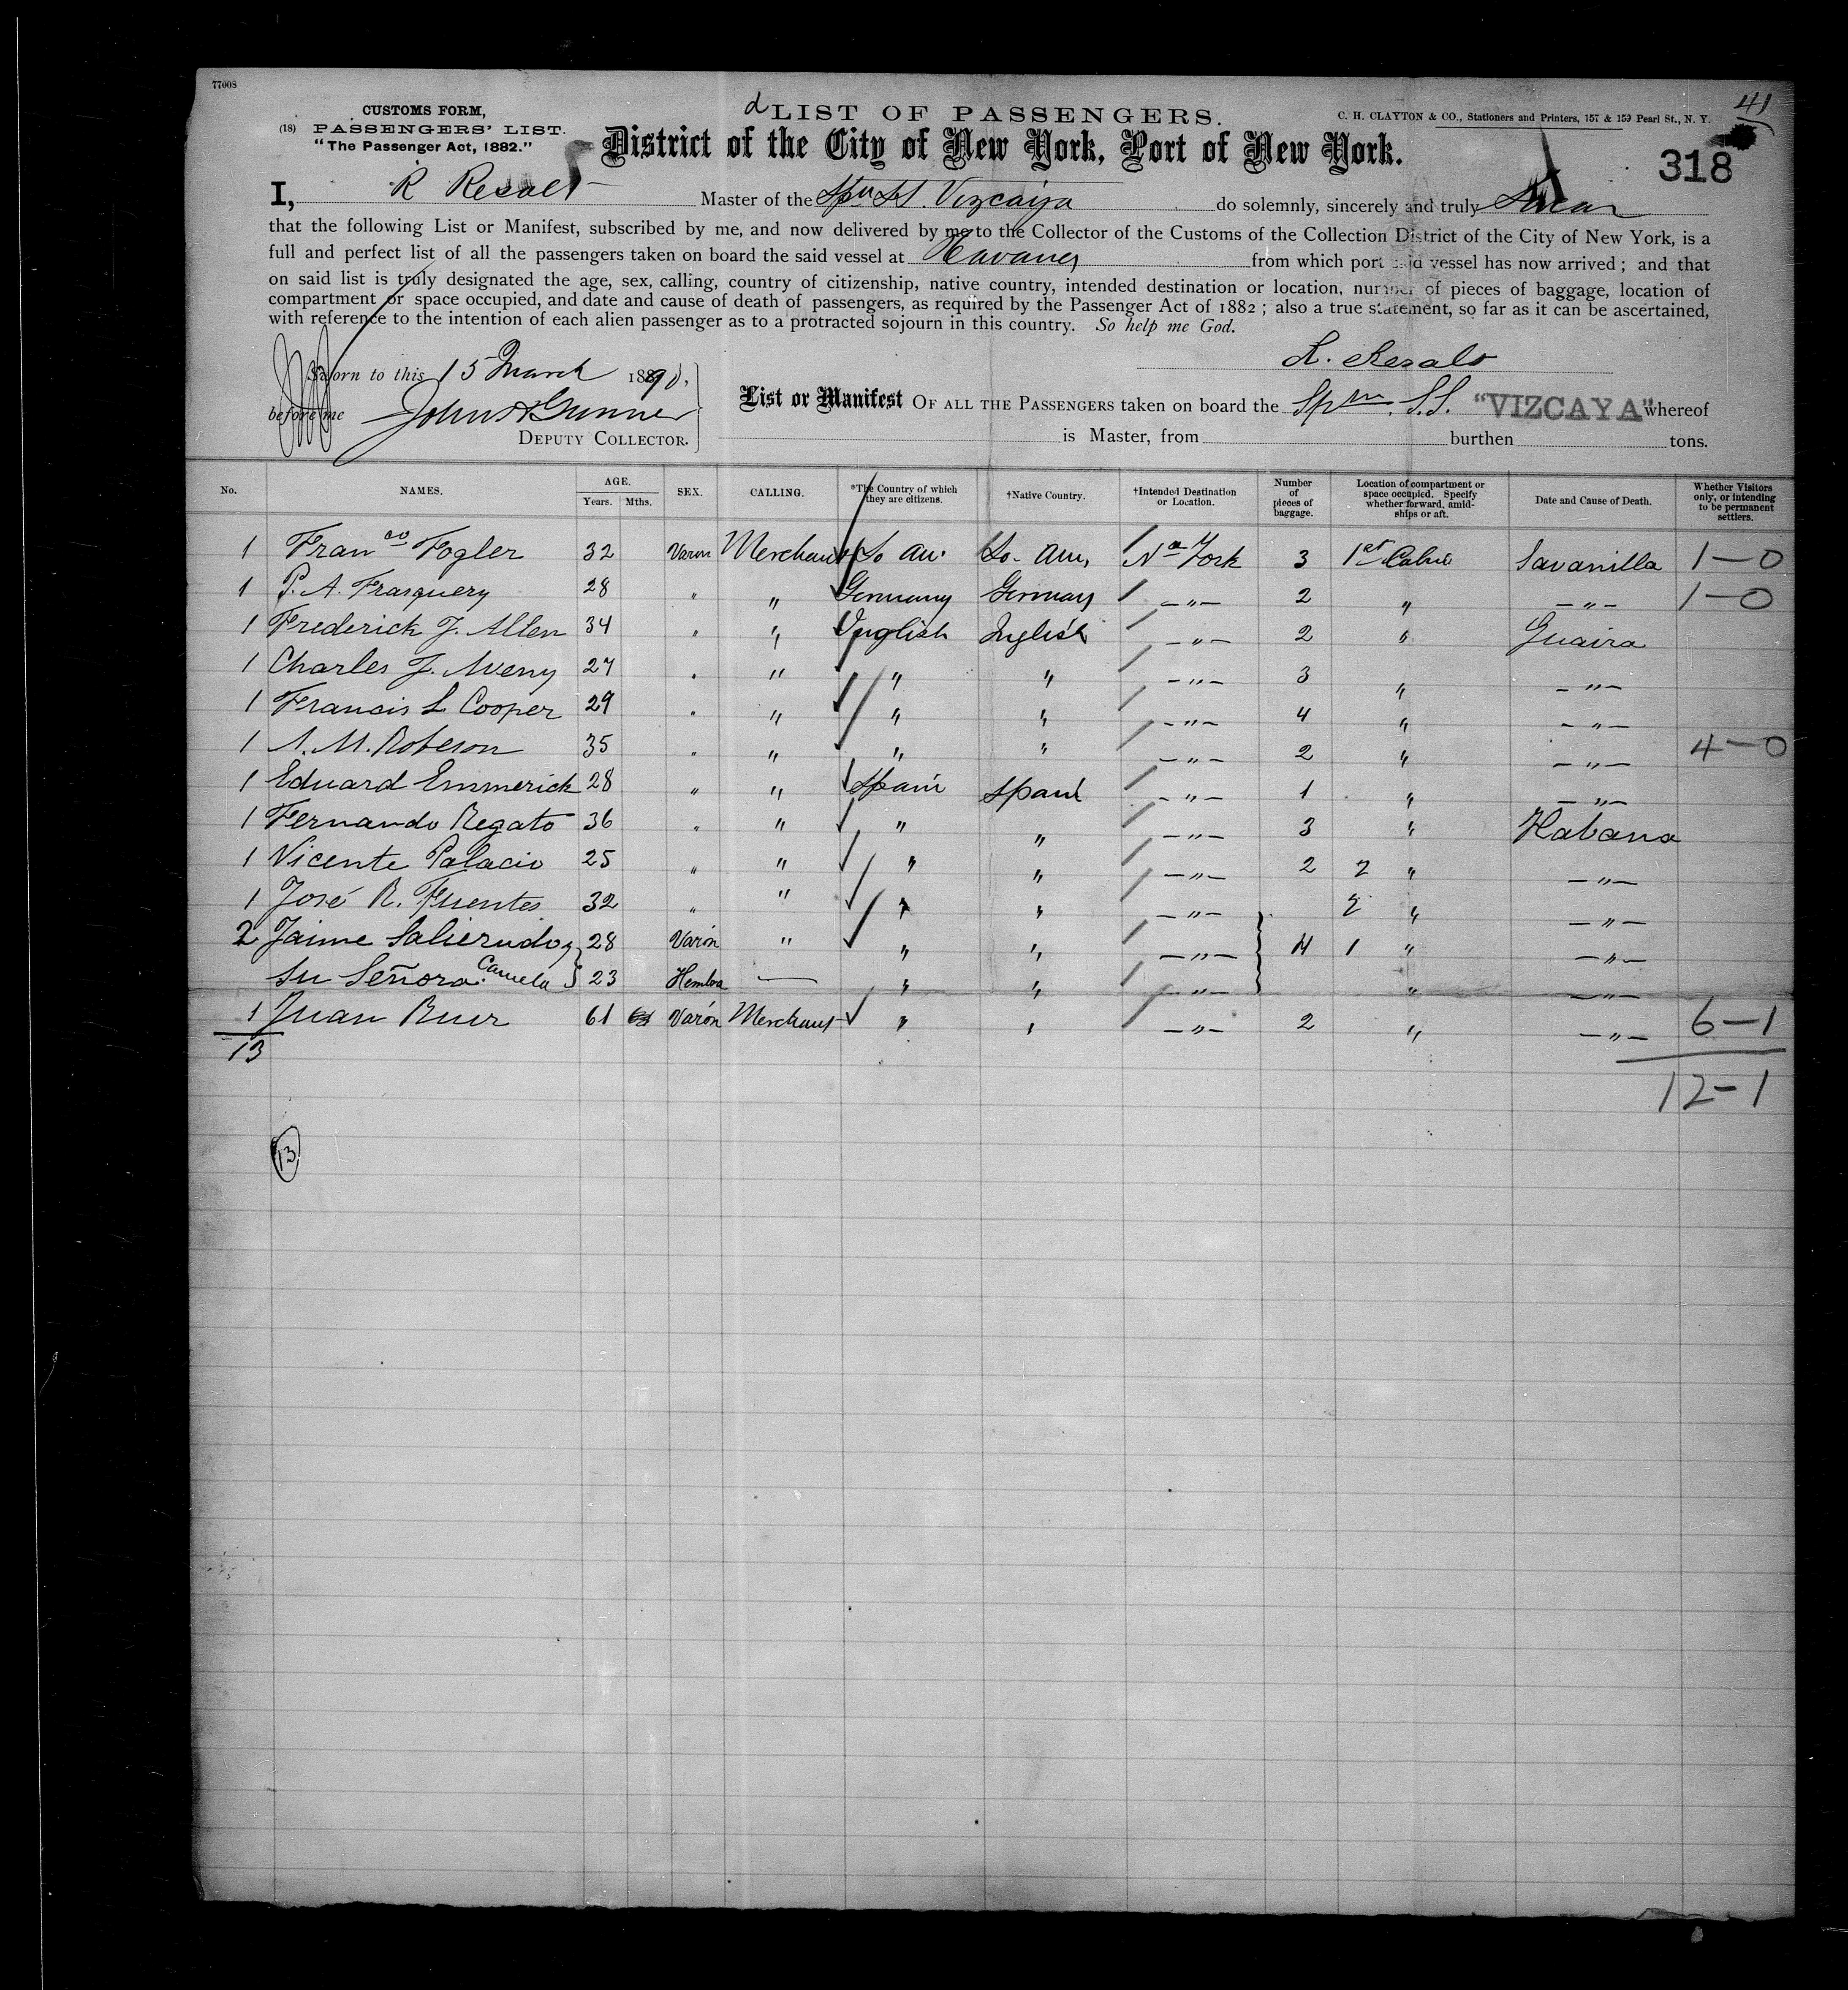 77008
41
CUSTOMS FORM,
(18) PASSENGERS' LIST.
"The Passenger Act, 1882."
d LIST OF PASSENGERS.
C. H. CLAYTON & CO., Stationers and Printers, 157 & 159 Pearl St., N. Y.
District of the City of New York, Port of New York.
318
I, R Resalt Master of the Spn SS. Vizcaiya do solemnly, sincerely and truly Swear
that the following List or Manifest, subscribed by me, and now delivered by me to the Collector of the Customs of the Collection District of the City of New York, is a
full and perfect list of all the passengers taken on board the said vessel at Havana from which port said vessel has now arrived; and that
on said list is truly designated the age, sex, calling, country of citizenship, native country, intended destination or location, number of pieces of baggage, location of
compartment or space occupied, and date and cause of death of passengers, as required by the Passenger Act of 1882; also a true statement, so far as it can be ascertained,
with reference to the intention of each alien passenger as to a protracted sojourn in this country. So help me God.
R. Resalt
Sworn to this 15 March 1890,
before me John A Gunner
DEPUTY COLLECTOR.
List or Manifest OF ALL THE PASSENGERS taken on board the Spn. S.S. "VIZCAYA" whereof
is Master, from burthen tons.
No. NAMES. AGE. Years. Mths. SEX. CALLING. *The Country of which they are citizens. †Native Country. †Intended Destination or Location. Number of pieces of baggage. Location of compartment or space occupied. Specify whether forward, amidships or aft. Date and Cause of Death. Whether Visitors only, or intending to be permanent settlers.
1 Franco Fogler 32 Varon Merchant So Am. So. Am, New York 3 1st Cabin Savanilla 1—0
1 P. A. Frasquery 28 " " Germany Germany —"— 2 " —"— 1—0
1 Frederick J. Allen 34 " " Inglish Inglish —"— 2 " Guaira
1 Charles J. Aveny 27 " " " " —"— 3 " —"—
1 Francis L Cooper 29 " " " " —"— 4 " —"—
1 A. M. Roberson 35 " " " " —"— 2 " —"— 4—0
1 Eduard Emmerick 28 " " Spain Spain —"— 1 " —"—
1 Fernando Regato 36 " " " " —"— 3 " Habana
1 Vicente Palacio 25 " " " " —"— 2 2 " —"—
1 José R. Fuentes 32 " " " " —"— 2 " —"—
2 Jaime Salierudo y 28 Varón " " " —"— 4 1 " —"—
su Señora Camela 23 Hembra — " " —"— " —"—
1 Juan Ruer 61 Varón Merchant " " —"— 2 " —"— 6—1
13
12—1
13